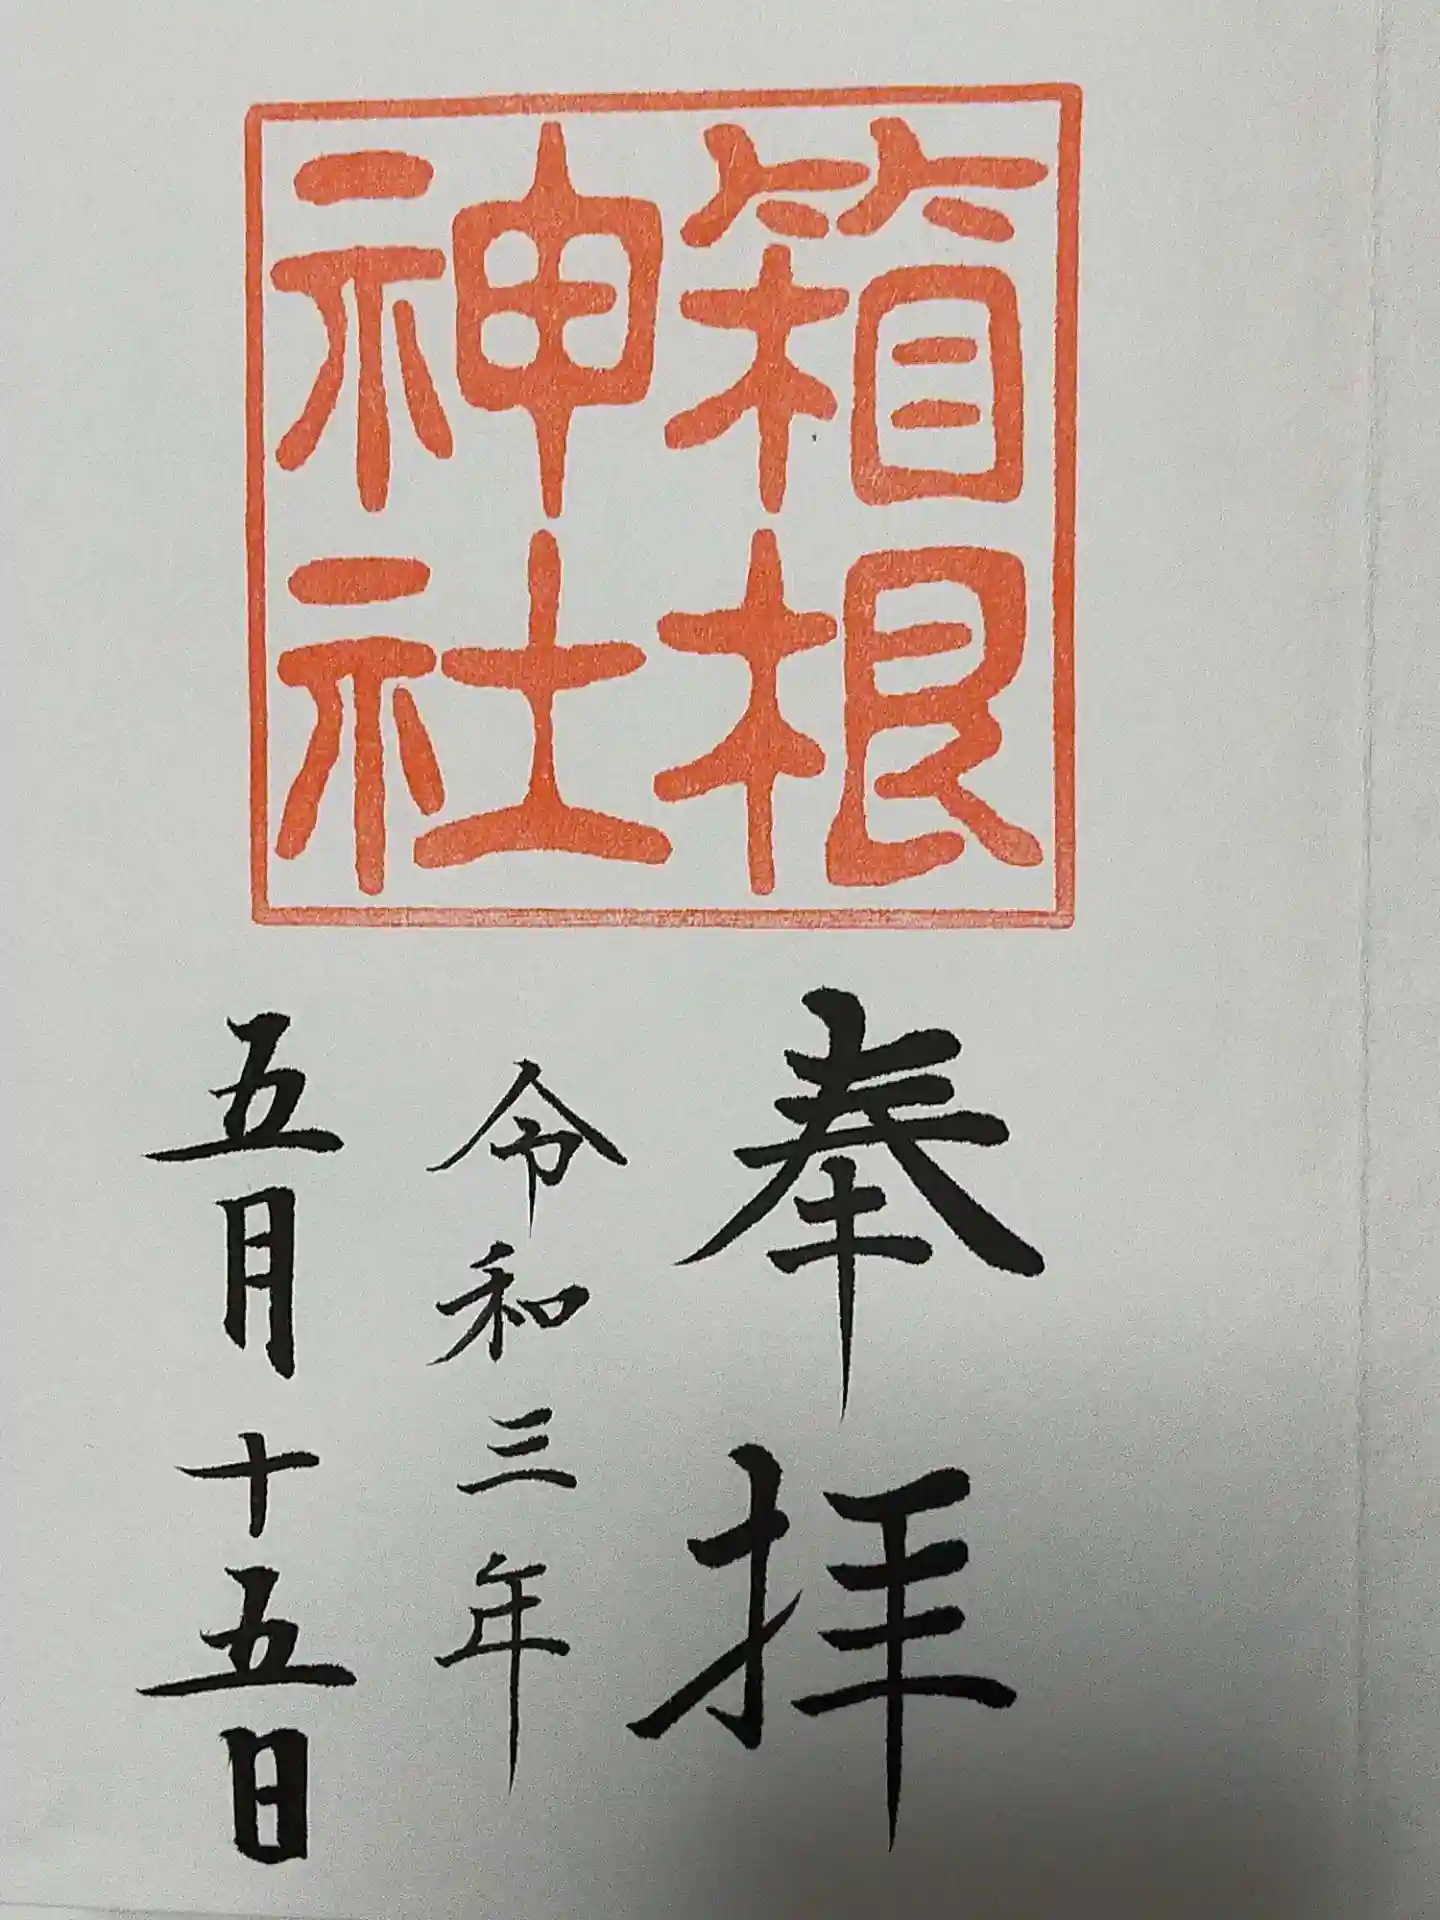 箱根
神社
奉拝
令和三年
五月十五日